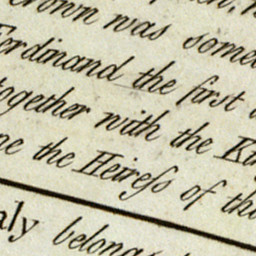 crown was some
Ferdinand the first
together with the Ki
he Heireſs of th
aly belong